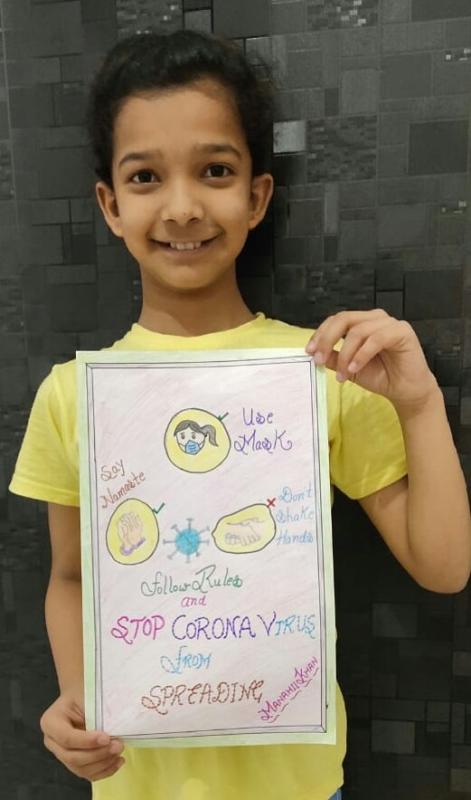 Use
Mask
Say
Namaste
Don't
Shake
Hands
Follow Rules
and
STOP CORONA VIRUS
FROM
SPREADING
MANAHIL KHAN